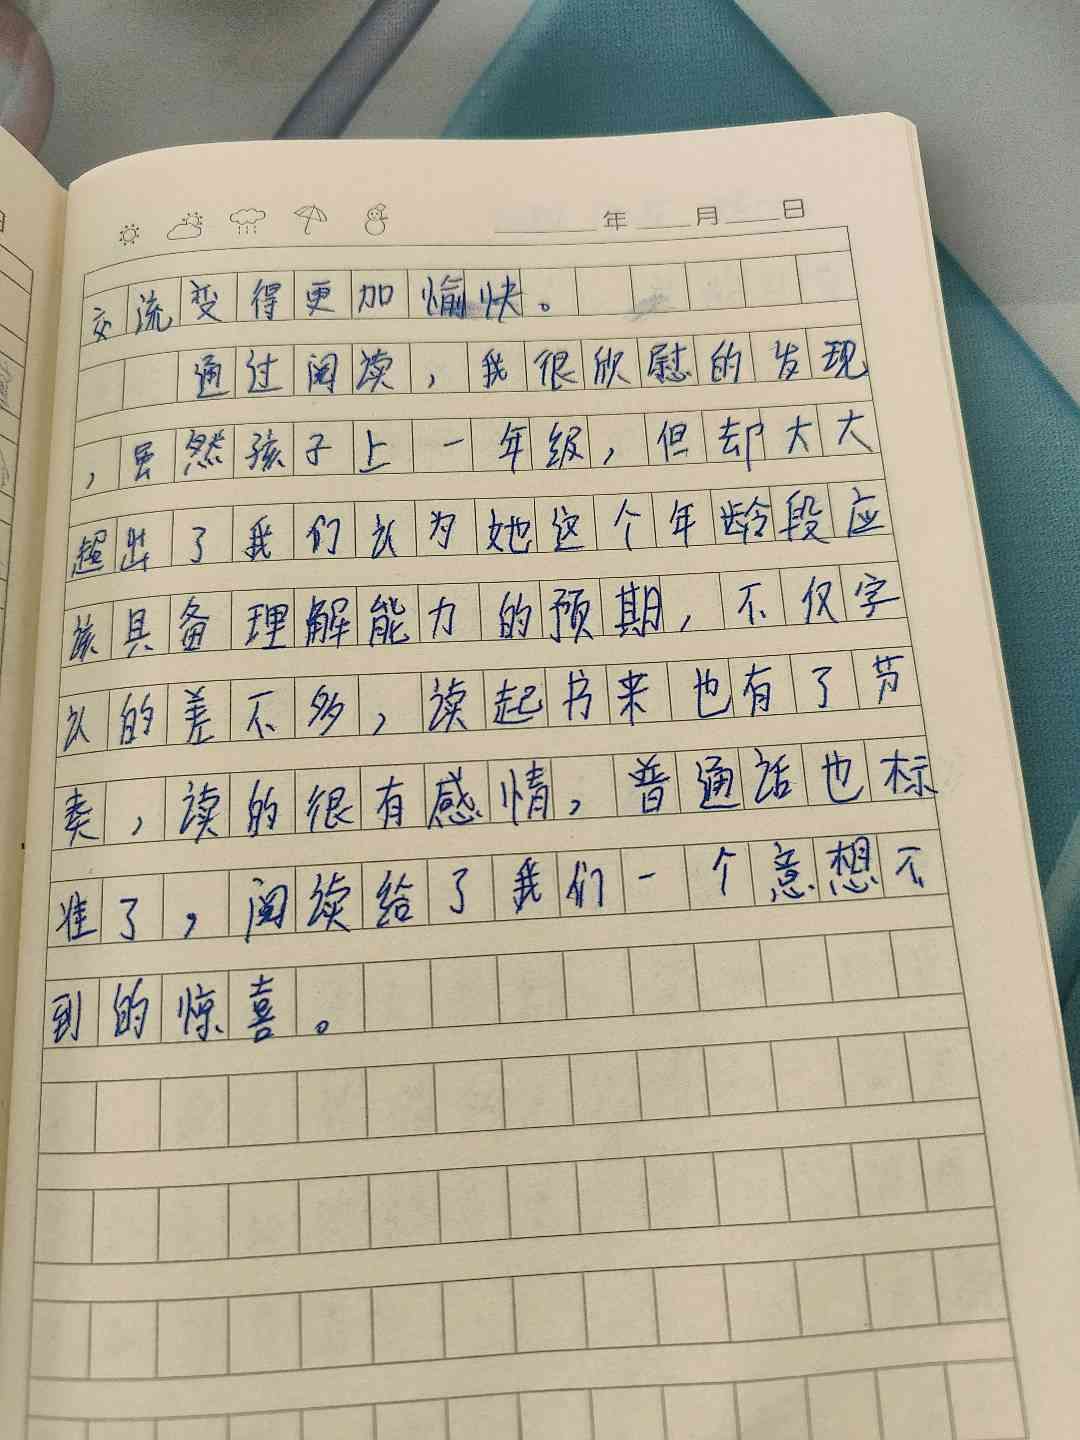 年 月 日
交流变得更加愉快。
通过阅读，我很欣慰的发现
，虽然孩子上一年级，但却大大
超出了我们认为她这个年龄段应
该具备理解能力的预期，不仅字
认的差不多，读起书来也有了节
奏，读的很有感情，普通话也标
准了，阅读给了我们一个意想不
到的惊喜。